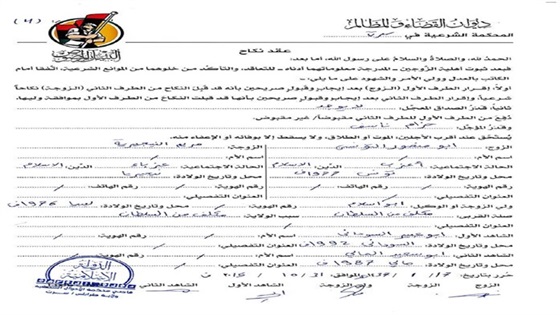 ديوان القضاء والمظالم
المحكمة الشرعية في سرت
عقد نكاح
الحمدُ لله، والصلاةُ والسلامُ على رسول الله، أما بعد:
فبعد ثبوت أهلية الزوجين - المدرجة معلوماتهما أدناه - للتعاقد، والتأكد من خلوهما من الموانع الشرعية، اتفقا أمام
الكاتب بالعدل وولي الأمر والشهود على ما يلي:
أولاً: إقرار الطرف الأول (الزوج) بعد إيجاب وقبول صريحين بأنه قد قبل النكاح من الطرف الثاني (الزوجة) نكاحاً
شرعياً، وإقرار الطرف الثاني بعد إيجاب وقبول صريحين بأنها قد قبلت النكاح من الطرف الأول بموافقة وليها.
ثانياً: قدر الصداق المعجل: لا يوجد
دُفع من الطرف الأول للطرف الثاني مقبوضاً/ غير مقبوض.
وقدر المؤجل: حزام ناسف
يُستحق عند اقرب الأجلين، الموت أو الطلاق، ولا يسقط إلا بوفائه أو الإعفاء منه.
الزوج: أبو منصور التونسي الزوجة: مريم النيجيرية
اسم الأم: اسم الأم:
الحالة الاجتماعية: أعزب الدين: الإسلام الحالة الاجتماعية: عزباء الدين: الإسلام
محل وتاريخ الولادة: تونس 1977 محل وتاريخ الولادة: نيجيريا
رقم الهوية: رقم الهاتف: رقم الهوية: رقم الهاتف:
العنوان التفصيلي: العنوان التفصيلي:
ولي الزوجة أو الوكيل: أبو أسلام محل وتاريخ الولادة: ليبيا 1976
صفة القربى: مكلف من السلطان سبب الولاية: مكلف من السلطان
الشاهد الأول: أبو عبير السوداني اسم الأم: رقم الهوية:
محل وتاريخ الولادة: السودان 1992 العنوان التفصيلي:
الشاهد الثاني: أبو سعيد المالي اسم الأم: رقم الهوية:
محل وتاريخ الولادة: مالي 1987 العنوان التفصيلي:
حرر بتاريخ: الموافق:
الزوج الزوجة ولي الزوجة الشاهد الأول الشاهد الثاني
الدولة
الإسلامية